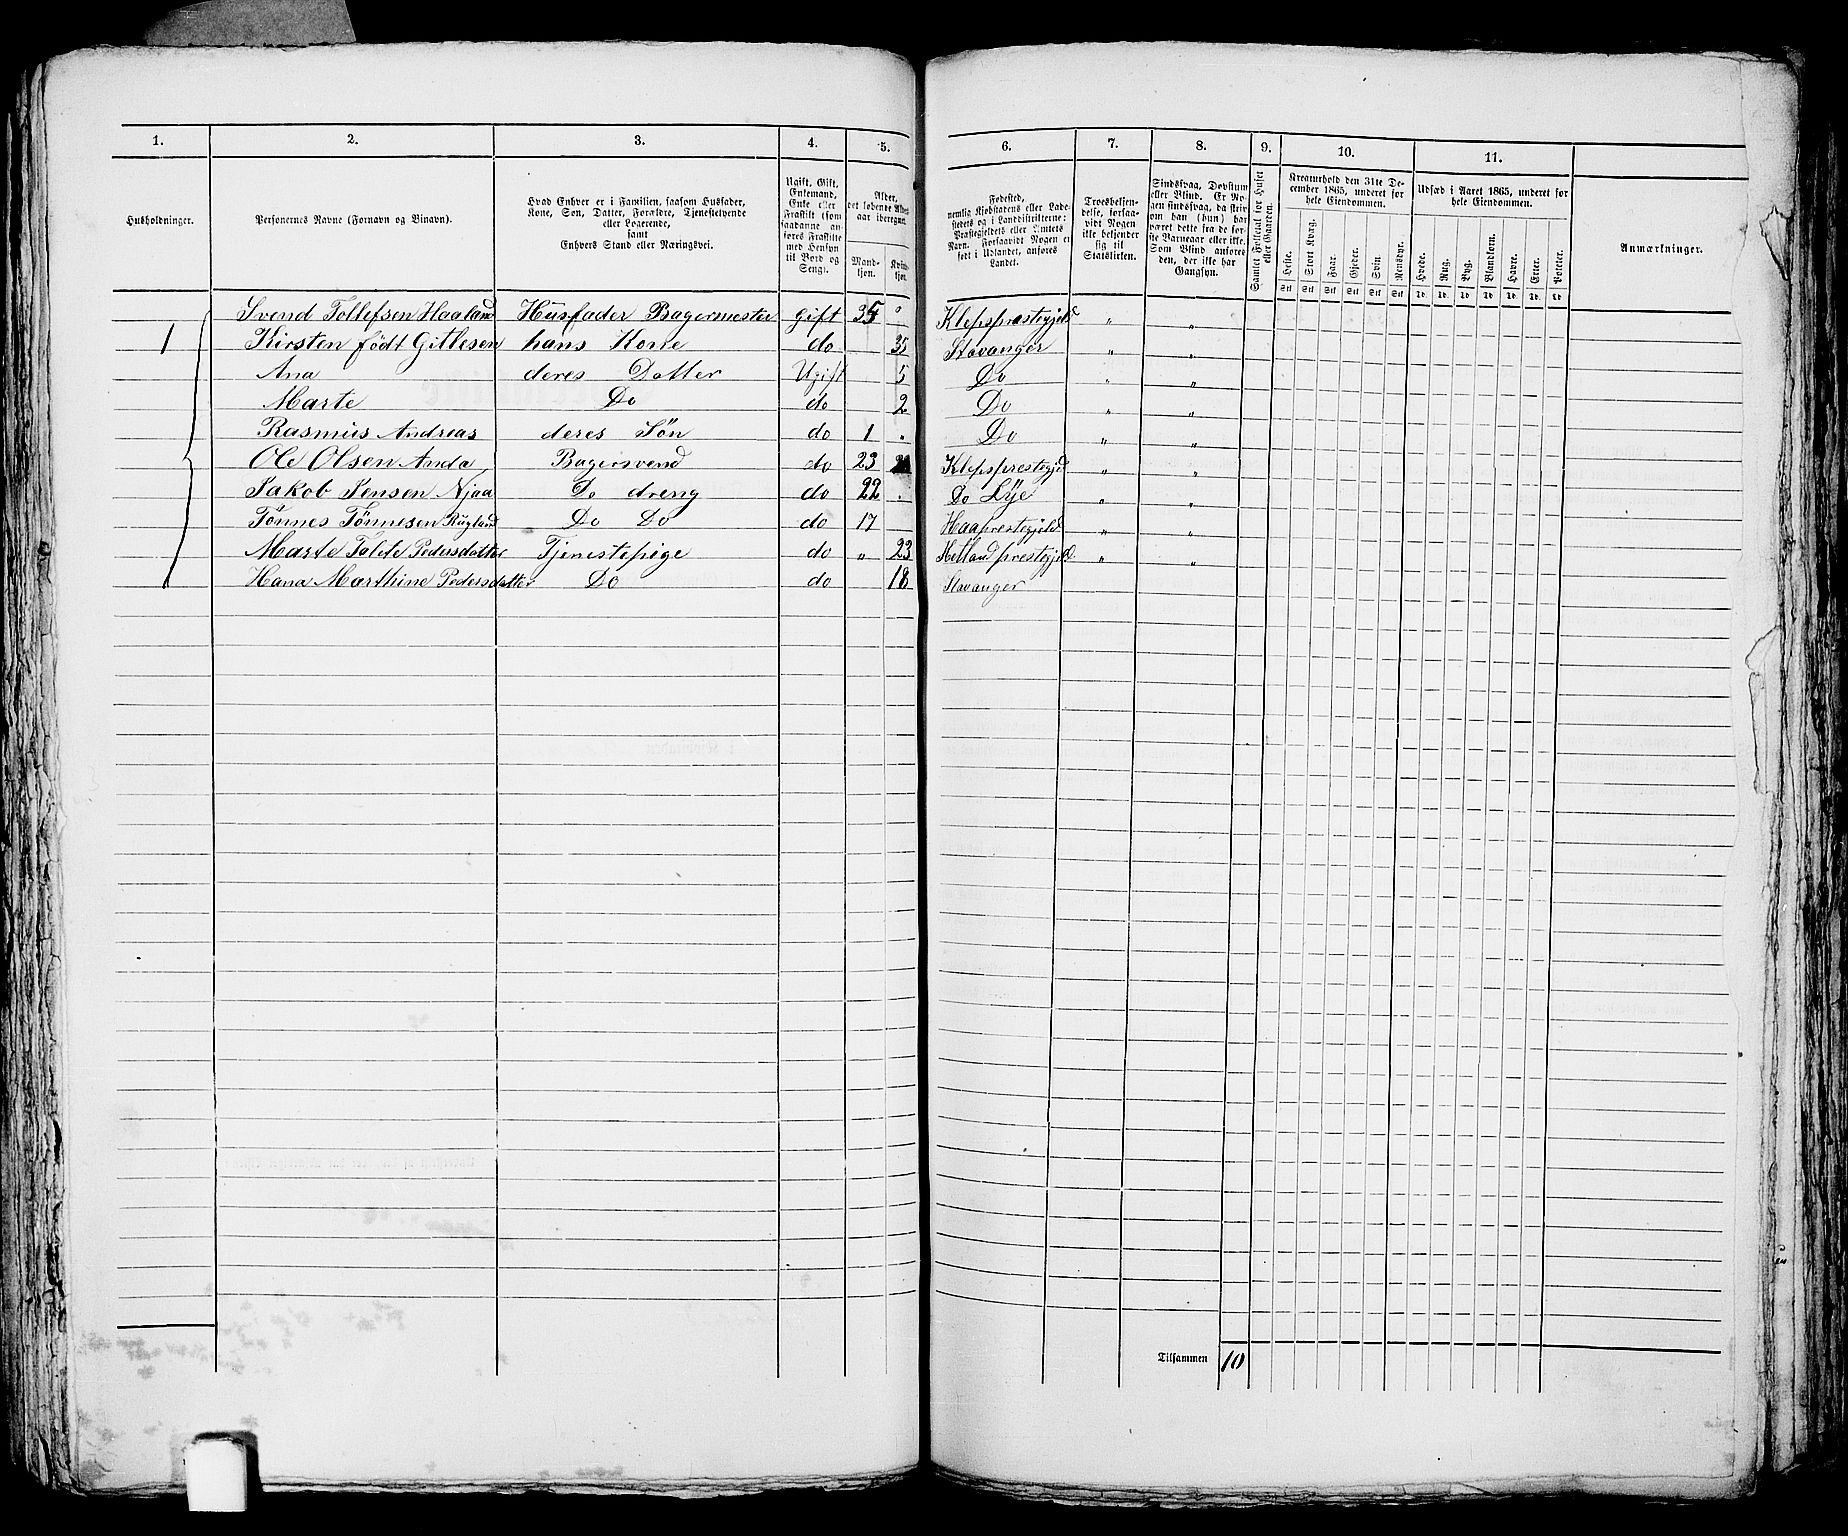 1. 2. 3. 4. 5. 6. 7. 8. 9. 10. 11.
Husholdninger.
Personernes Navne (Fornavn og Binavn).
Hvad Enhver er i Familien, saasom Husfader,
Kone, Søn, Datter, Forældre, Tjenestetyende
eller Logerende,
samt
Enhvers Stand eller Næringsvei.
Ugift, Gift,
Enkemand,
Enke eller
Fraskilt (som
saadanne an-
føres Fraskilte
med Hensyn
til Bord og
Seng).
Alder,
det løbende Alders-
aar iberegnet.
Mand-
kjøn.
Kvin-
kjøn.
Fødested,
nemlig Kjøbstadens eller Lade-
stedets og i Landdistrikterne:
Præstegjeldets eller Amtets
Navn. Forsaavidt Nogen er
født i Udlandet, anføres
Landet.
Troesbekjen-
delse, forsaa-
vidt Nogen
ikke bekjender
sig til
Statskirken.
Sindssvag, Døvstum
eller Blind. Er No-
gen sindssvag, da skri-
ves om han (hun) har
været dette fra de før-
ste Barneaar eller ikke.
Som Blind anføres
den, der ikke har
Gangsyn.
Samlet Folketal for Huset
eller Gaarden.
Kreaturhold den 31te De-
cember 1865, underet for
hele Eiendommen.
Heste. Stort Kvæg. Faar. Gjeder. Svin. Rensdyr.
Stk Stk Stk Stk Stk Stk
Udsæd i Aaret 1865, underet for
hele Eiendommen.
Hvede. Rug. Byg. Blandkorn. Havre. Erter. Poteter.
Td. Td. Td. Td. Td. Td. Td.
Anmærkninger.
Svend Tollefsen Haaland Husfader Bagermester gift 35 " Klepsprestegjeld " "
1 Kirsten født Gitlesen hans Kone do 35 Stavanger " "
Ana deres Datter Ugift 5 Do " "
Marte Do do 2 Do " "
Rasmus Andreas deres Søn do 1 " Do " "
Ole Olsen Anda Bagersvend do 23 Klepsprestegjd " "
Jakob Jensen Njaa Do dreng do 22 . Do Lye " "
Tønnes Tønnesen Rugland Do Do do 17 Haaprestegjeld " "
Marte Talete Pedersdatter Tjenestepige do " 23 Hetland prestegjeld " "
Hana Marthine Pedersdatter Do do 18 Stavanger
Tilsammen 10